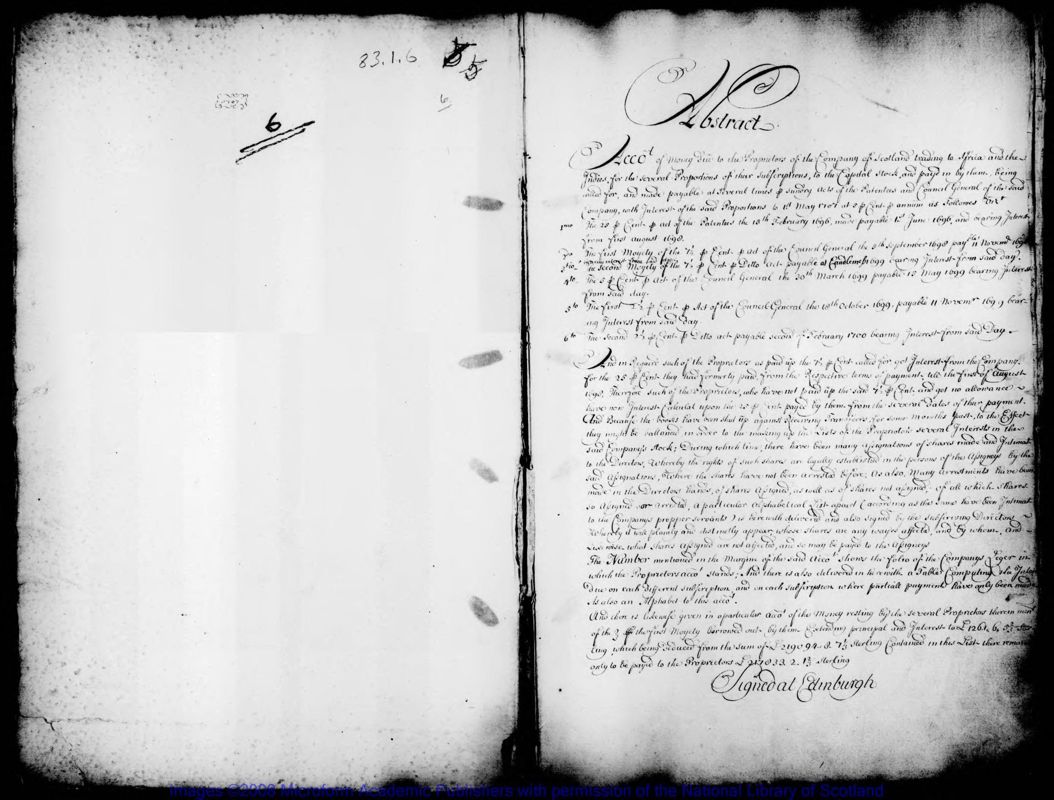 83.1.6
5
6
6
Abstract
Acco.t of Money due to the Proprietors of the Company of Scotland trading to Africa and the
Indies, for the several Proportions of their Subscriptions, to the Capital Stock, and payd in by them, being
called for, and made payable at several times ꝑ sundry Acts of the Patentees and Council General of the said
Company, with Interest of the said Proportions to 1st May 1707 at 5 ꝑ Cent ꝑ annum as Followes
1mo The 25 ꝑ Cent ꝑ act of the Patentees the 18th February 1696, made payable 1st June 1696, and bearing Interest
from first August 1698.
The first Moyety of the 7½ ꝑ Cent ꝑ act of the Council General the 9th September 1698 11 Novem.r 1698
3tio The second Moyety of the 7½ ꝑ Cent ꝑ Ditto Act Payable at Candlemes 1699 bearing Interest from said day.
4to The 5 ꝑ Cent ꝑ Act of the Council General the 30th March 1699 payable 15 May 1699 bearing Interest
from said day.
5to The first 2½ ꝑ Cent ꝑ Act of the Council General the 18th October 1699, payable 11 Novem.r 1699 bear=
ing Interest from said day
6to The Second 2½ ꝑ Cent ꝑ Ditto act payable second of February 1700 bearing Interest from said Day
And in Regaird such of the Proprietors as paid up the 7½ ꝑ Cent called for got Interest from the Company
for the 25 ꝑ Cent they had formerly paid, from the Respective terms of payment, till the first of August
1698. Therfor such of the Proprietors, who have not paid up the said 7½ ꝑ Cent and got no allowance
have now Interest Calculat upon the 25 ꝑ Cent payed by them from the several dates of their payment.
And Because the books have been shut up against Receiving Transferrs for some Months past, to the Effect
they might be ballanced in order to the making up the Lists of the Proprietors several Interests in the
said Companys Stock; During which time, there have been many Assignations of shares made and Intimat
to the Directors, Whereby the rights of such shares are legally established in the persons of the Assigneys by the
said Assignations, Where the shares have not been arrested before; As also, Many Arrestments have been
made in the Directors hands, of shares Assigned, as well as of shares not assigned, of all which shares
so Assigned or arrested, a particular Alphabetical List apart (according as the same have been Intimat
to the Companys propper servants) is herewith delivered and also signed by the subscriving Directors
Whereby it will plainly and distinctly appear, whose shares are any wayes affected, and by whom, And
likewise, what shares Assigned are not affected, and so may be payed to the Assigneys
The Number mentioned in the Margine of the said Acco.t shows the folio of the Companys Leger in
which the Proprietors acco.t stands; And there is also delivered in herewith a Table Computing the Interest
due on each different subscription, and on each subscription where partiall payments have only been made
As also an Alphabet to this acco.t
And there is likewise given in a particular Acco.t of the Money resting by the several Proprietors therein
of the first Moyety borrowed out by them Extending principal and Interest to £1261. 6.
ling which being deduced from the sum of £219094. 8. 7⅓ Sterling Contained in this List there remains
only to be payed to the Proprietors £217833. 2. Sterling
Signed at Edinburgh
Images ©2006 Microform Academic Publishers with permission of the National Library of Scotland